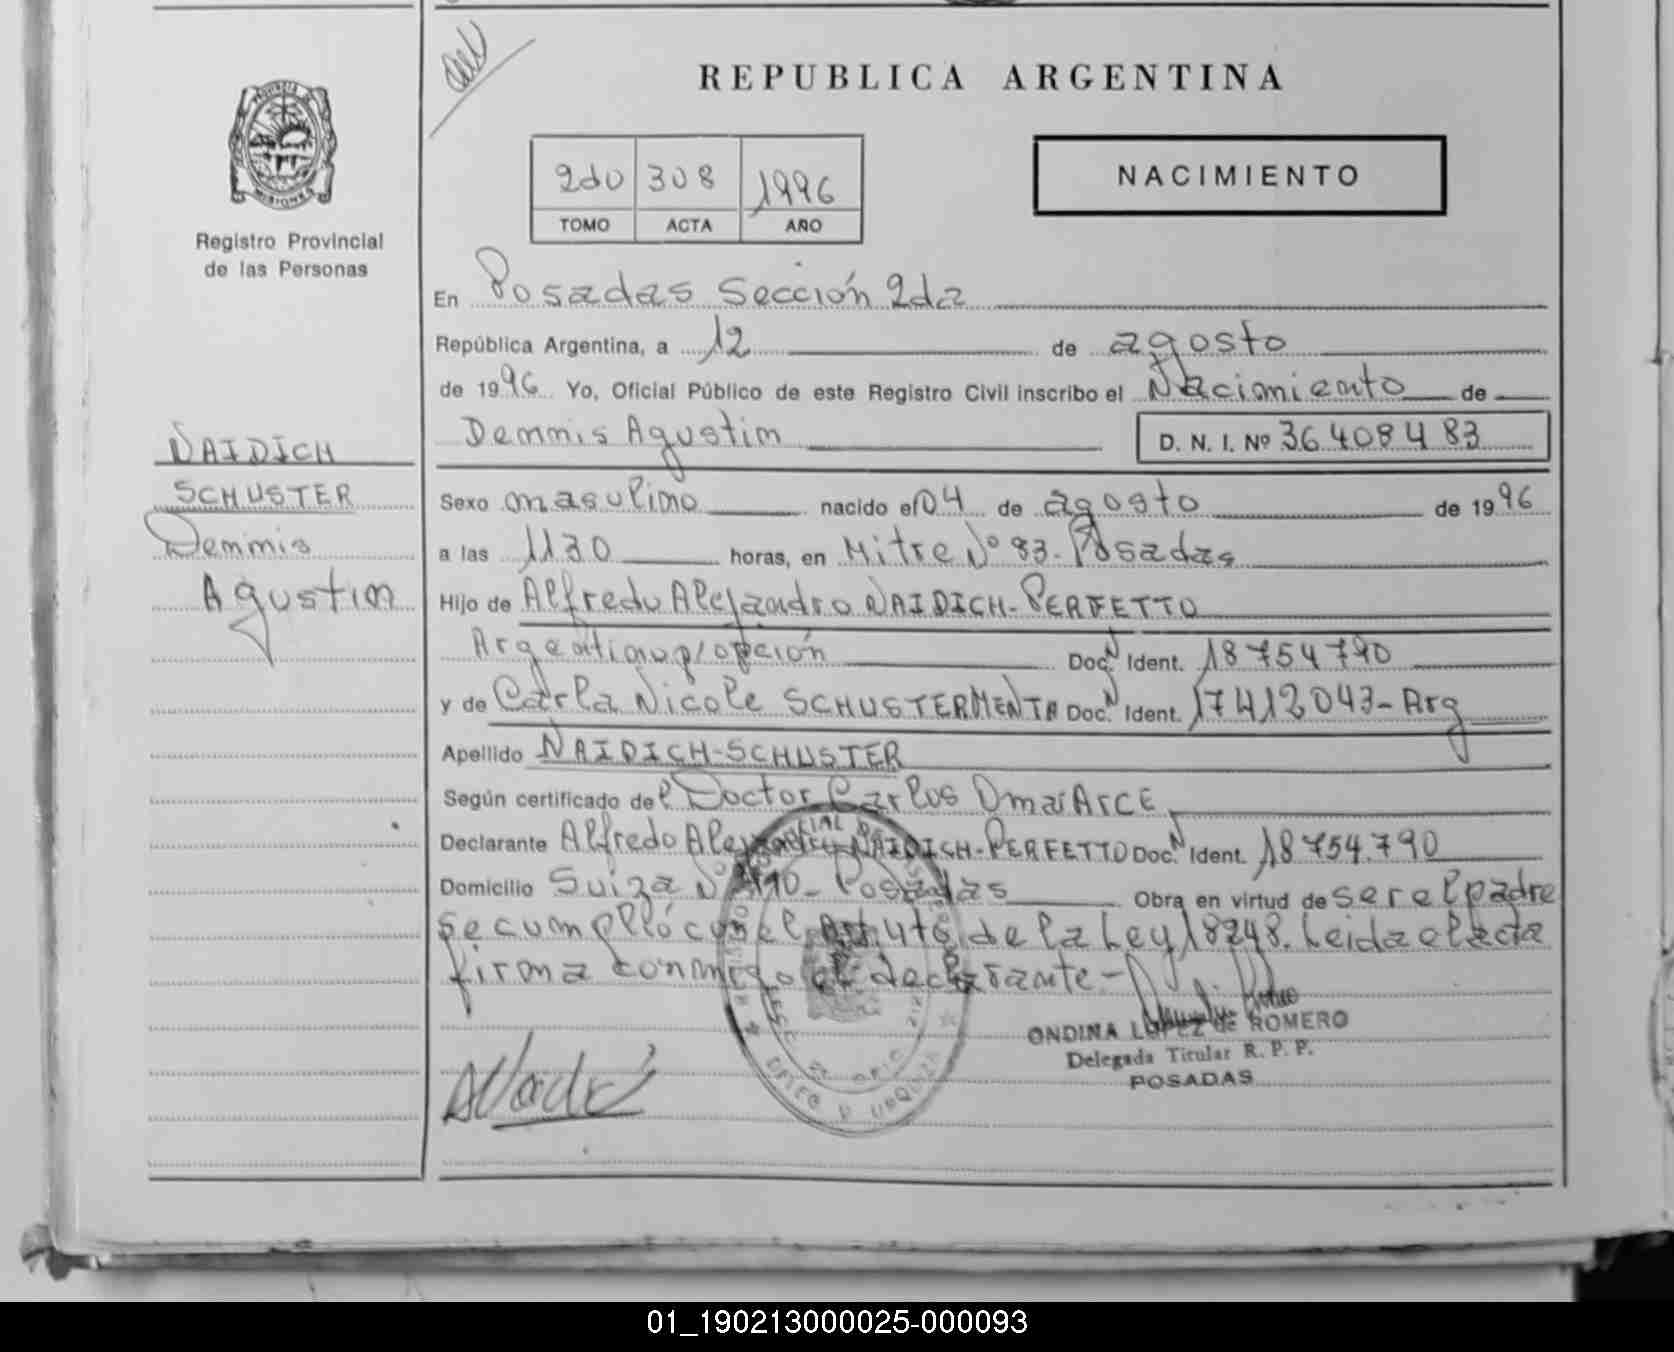 REPUBLICA ARGENTINA
2do 308 1996
TOMO ACTA AÑO
NACIMIENTO
Registro Provincial
de las Personas
En Posadas Sección 2da
República Argentina, a 12 de agosto
de 1996 Yo, Oficial Público de este Registro Civil inscribo el Nacimiento de
Dennis Agustin D. N. I. Nº 36408483
NAIDICH
SCHUSTER
Dennis
Agustin
Sexo masulino nacido el 04 de agosto de 1996
a las 1130 horas, en Mitre Nº 83. Posadas
Hijo de Alfredo Alejandro NAIDICH-PERFETTO
Argentino p/opción Doc.N Ident. 18754790
y de Carla Nicole SCHUSTER MENTA Doc.N Ident. 17412043-Arg
Apellido NAIDICH-SCHUSTER
Según certificado del Doctor Carlos Omar ARCE
Declarante Alfredo Alejandro NAIDICH-PERFETTO Doc.N Ident. 18754.790
Domicilio Suiza Nº Posadas Obra en virtud de ser el padre
se cumplló con el de la Ley 18248. Leida el acta
firma conmigo el declarante-
ONDINA LOPEZ de ROMERO
Delegada Titular R. P. P.
POSADAS
01_190213000025-000093